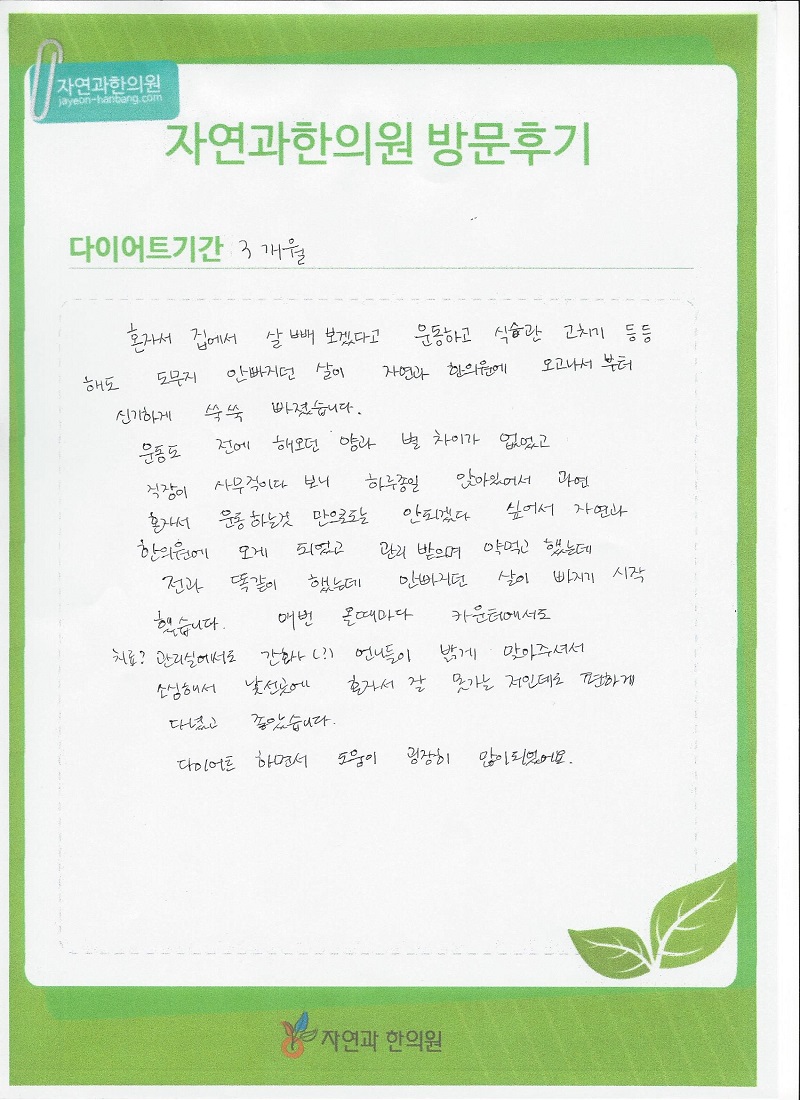 자연과한의원
jayeon-hanbang.com
자연과한의원 방문후기
다이어트기간 3 개월
혼자서 집에서 살 빼 보겠다고 운동하고 식습관 고치기 등등
해도 도무지 안빠지던 살이 자연과 한의원에 오고나서 부터
신기하게 쑥쑥 빠졌습니다.
운동도 전에 해오던 양과 별 차이가 없었고
직장이 사무직이다 보니 하루종일 앉아있어서 과연
혼자서 운동하는것 만으로도는 안되겠다 싶어서 자연과
한의원에 오게 되었고 관리 받으며 약먹고 했는데
전과 똑같이 했는데 안빠지던 살이 빠지기 시작
했습니다. 매번 올때마다 카운터에서도
치료? 관리실에서도 간호사(?) 언니들이 밝게 맞아주셔서
소심해서 낯선곳에 혼자서 잘 못가는 저인데도 편하게
다녔고 좋았습니다.
다이어트 하면서 도움이 굉장히 많이되었어요.
자연과 한의원